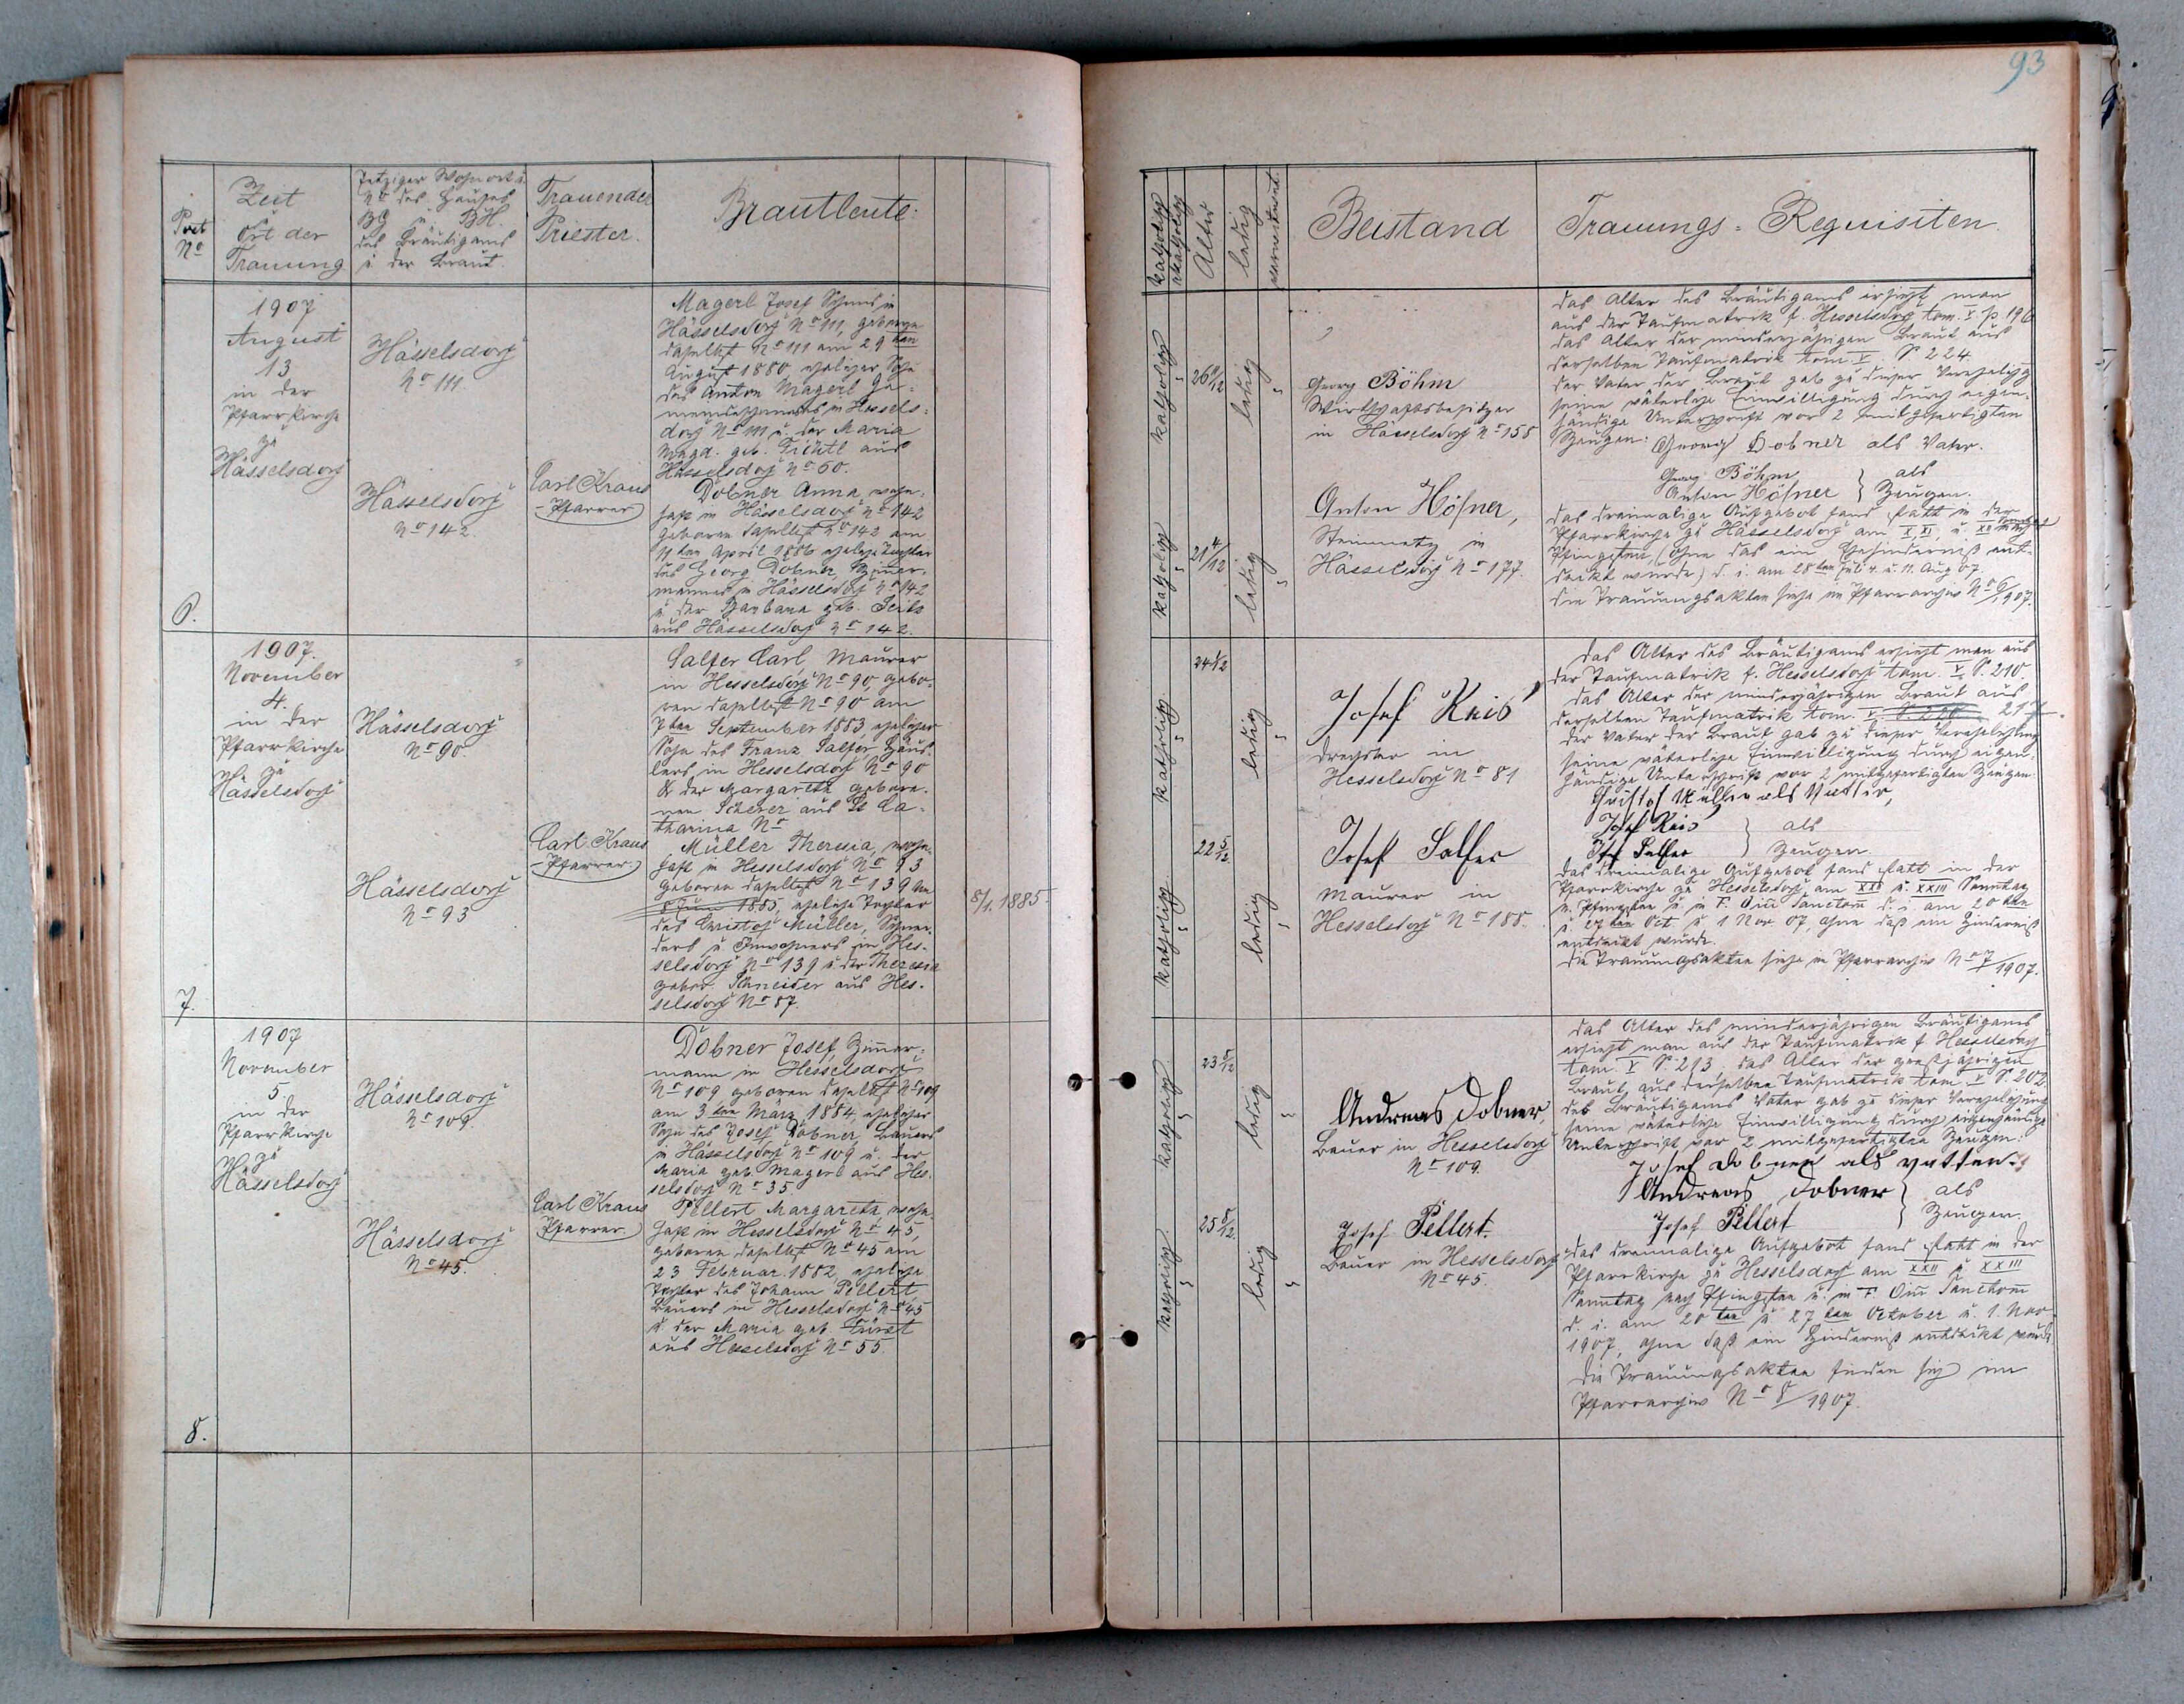 93
Post
No
Zeit
u
Ort der
Trauung
Jetziger Wohnort u.
No des Hauses
BG u. BH.
des Bräutigams
u der Braut.
Trauender
Priester.
Brautleute:
katholisch
akatholisch
Alter
ledig
verwittwet
Beistand
Trauungs-Requisiten
6.
1907
August
13
in der
Pfarrkirche
zu
Hässelsdorf
Hässelsdorf
No 111.
Hässelsdorf
No 142.
Carl Kraus
Pfarrer
Magerl Josef
Hässelsdorf No 111, geboren
daselbst No 111 am 29ten
August 1880, ehelicher Sohn
des Anton Magerl Ge-
in Hessels-
dorf No 111 u. der Maria
Magd. geb. Fichtl aus
Hässelsdorf No 60.
Dobner Anna, wohn-
haft in Hässelsdorf No 142
geboren daselbst No 142 am
11ten April 1886 eheliche Tochter
des Georg Dobner, Zimmer-
mannes in Hässelsdorf No 142
u. der Barbara geb.
aus Hässelsdorf No 142.
katholisch
26 11/12
ledig
katholisch
21 4/12
ledig
Georg Böhm
Wirthschaftsbesitzer
in Hässelsdorf No 158
Anton Höfner,
Steinmetz in
Hässelsdorf No 177.
Das Alter des Bräutigams ersieht man
aus der Taufmatrik f. Hesselsdorf tom. V. p. 196
das Alter der minderjährigen Braut aus
derselben Taufmatrik tom V. S. 224.
Der Vater der Braut gab zu dieser Verehelichg
seine väterliche Einwilligung durch eigen-
händige Unterschrift vor 2 mitgefertigten
Zeugen: Georg Dobner als Vater.
Georg Böhm } als
Anton Höfner } Zeugen.
Das dreimalige Aufgebot fand statt in der
Pfarrkirche zu Hässelsdorf am X XI, u. XII Sonntag
Pfingsten, (ohne das ein Ehehinderniß ent-
deckt wurde) d. i. am 28ten Juli 4. u. 11. Aug 07.
Die Trauungsakten siehe im Pfarrarchiv No 6/1907.
7.
1907.
November
4.
in der
Pfarrkirche
zu
Hässelsdorf
Hässelsdorf
No 90.
Hässelsdorf
No 93
Carl Kraus
Pfarrer
Salfer Carl, Maurer
in Hesselsdorf No 90, gebo-
ren daselbst No 90 am
7ten September 1883, ehelicher
Sohn des Franz Salfer, Häus-
lers in Hesselsdorf No 90
& der Margareta gebore-
nen Scherer aus St Ca-
tharina No
Müller Theresia, wohn-
haft in Hesselsdorf No 93
geboren daselbst No 139 am
8 Juni 1885, eheliche Tochter
des Christof Müller, Schnei-
ders u Inwohners in Hes-
selsdorf No 139 u. der Theresia
gebor. Schneider aus Hes-
selsdorf No 87.
8/1. 1885.
24 1/12
katholisch
ledig
22 5/12
katholisch
ledig
Josef Kris
Drechsler in
Hesselsdorf No 81
Josef Salfer
Maurer in
Hesselsdorf No 188.
Das Alter des Bräutigams ersieht man aus
der Taufmatrik f. Hesselsdorf tom. V. S. 210.
Das Alter der minderjährigen Braut aus
derselben Taufmatrik tom. V. 217.
Der Vater der Braut gab zu dieser Verehelichung
seine väterliche Einwilligung durch eigen-
händige Unterschrift vor 2 mitgefertigten Zeugen:
Christof Müller als Vatter,
Josef Kris } als
Josef Salfer } Zeugen.
Das dreimalige Aufgebot fand statt in der
Pfarrkirche zu Hesselsdorf am XXII u. XXIII Sonntag
n. Pfingsten u. in F. Oim Sanctorm d. i. am 20ten
u. 27ten Oct u 1 Nov. 07, ohne daß ein Hinderniß
entdeckt wurde.
Die Trauungsakten siehe im Pfarrarchiv No 7/1907.
8.
1907
November
5
in der
Pfarrkirche
zu
Hässelsdorf
Hässelsdorf
No 109.
Hässelsdorf
No 45.
Carl Kraus
Pfarrer
Dobner Josef, Zimmer-
mann in Hesselsdorf
No 109 geboren daselbst No 109
am 3ten März 1884, ehelicher
Sohn des Josef Dobner, Bauers
in Hässelsdorf No 109 u. der
Maria geb. Magerl aus Hes-
selsdorf No 35.
Pellert Margareta, wohn-
haft in Hesselsdorf No 45,
geboren daselbst No 45 am
23 Februar 1882, eheliche
Tochter des Johann Pellert
Bauers in Hesselsdorf No 45
u. der Maria geb. Fürst
aus Hesselsdorf No 55.
katholisch
23 8/12
ledig
katholisch
25 8/12
ledig
Andreas Dobner,
Bauer in Hesselsdorf
No 109.
Josef Pellert.
Bauer in Hesselsdorf
No 45.
Das Alter des minderjährigen Bräutigams
ersieht man aus der Taufmatrik f Hesselsdorf
tom. V S. 213, das Alter der großjährigen
Braut, aus derselben Taufmatrik tom. V S. 202.
Des Bräutigams Vater gab zu dieser Verehelichung
seine väterliche Einwilligung durch eigenhändige
Unterschrift vor 2 mitgefertigten Zeugen:
Josef Dobner als vatter.
Andreas Dobner } als
Josef Pellert } Zeugen.
Das dreimalige Aufgebot fand statt in der
Pfarrkirche zu Hesselsdorf am XXII u. XXIII
Sonntag nach Pfingsten u. in F. Oim Sanctorm
d. i. am 20ten u 27ten October u. 1. Nov
1907, ohne daß ein Hinderniß entdeckt wurde
Die Trauungsakten finden sich im
Pfarrarchiv No 8/1907.